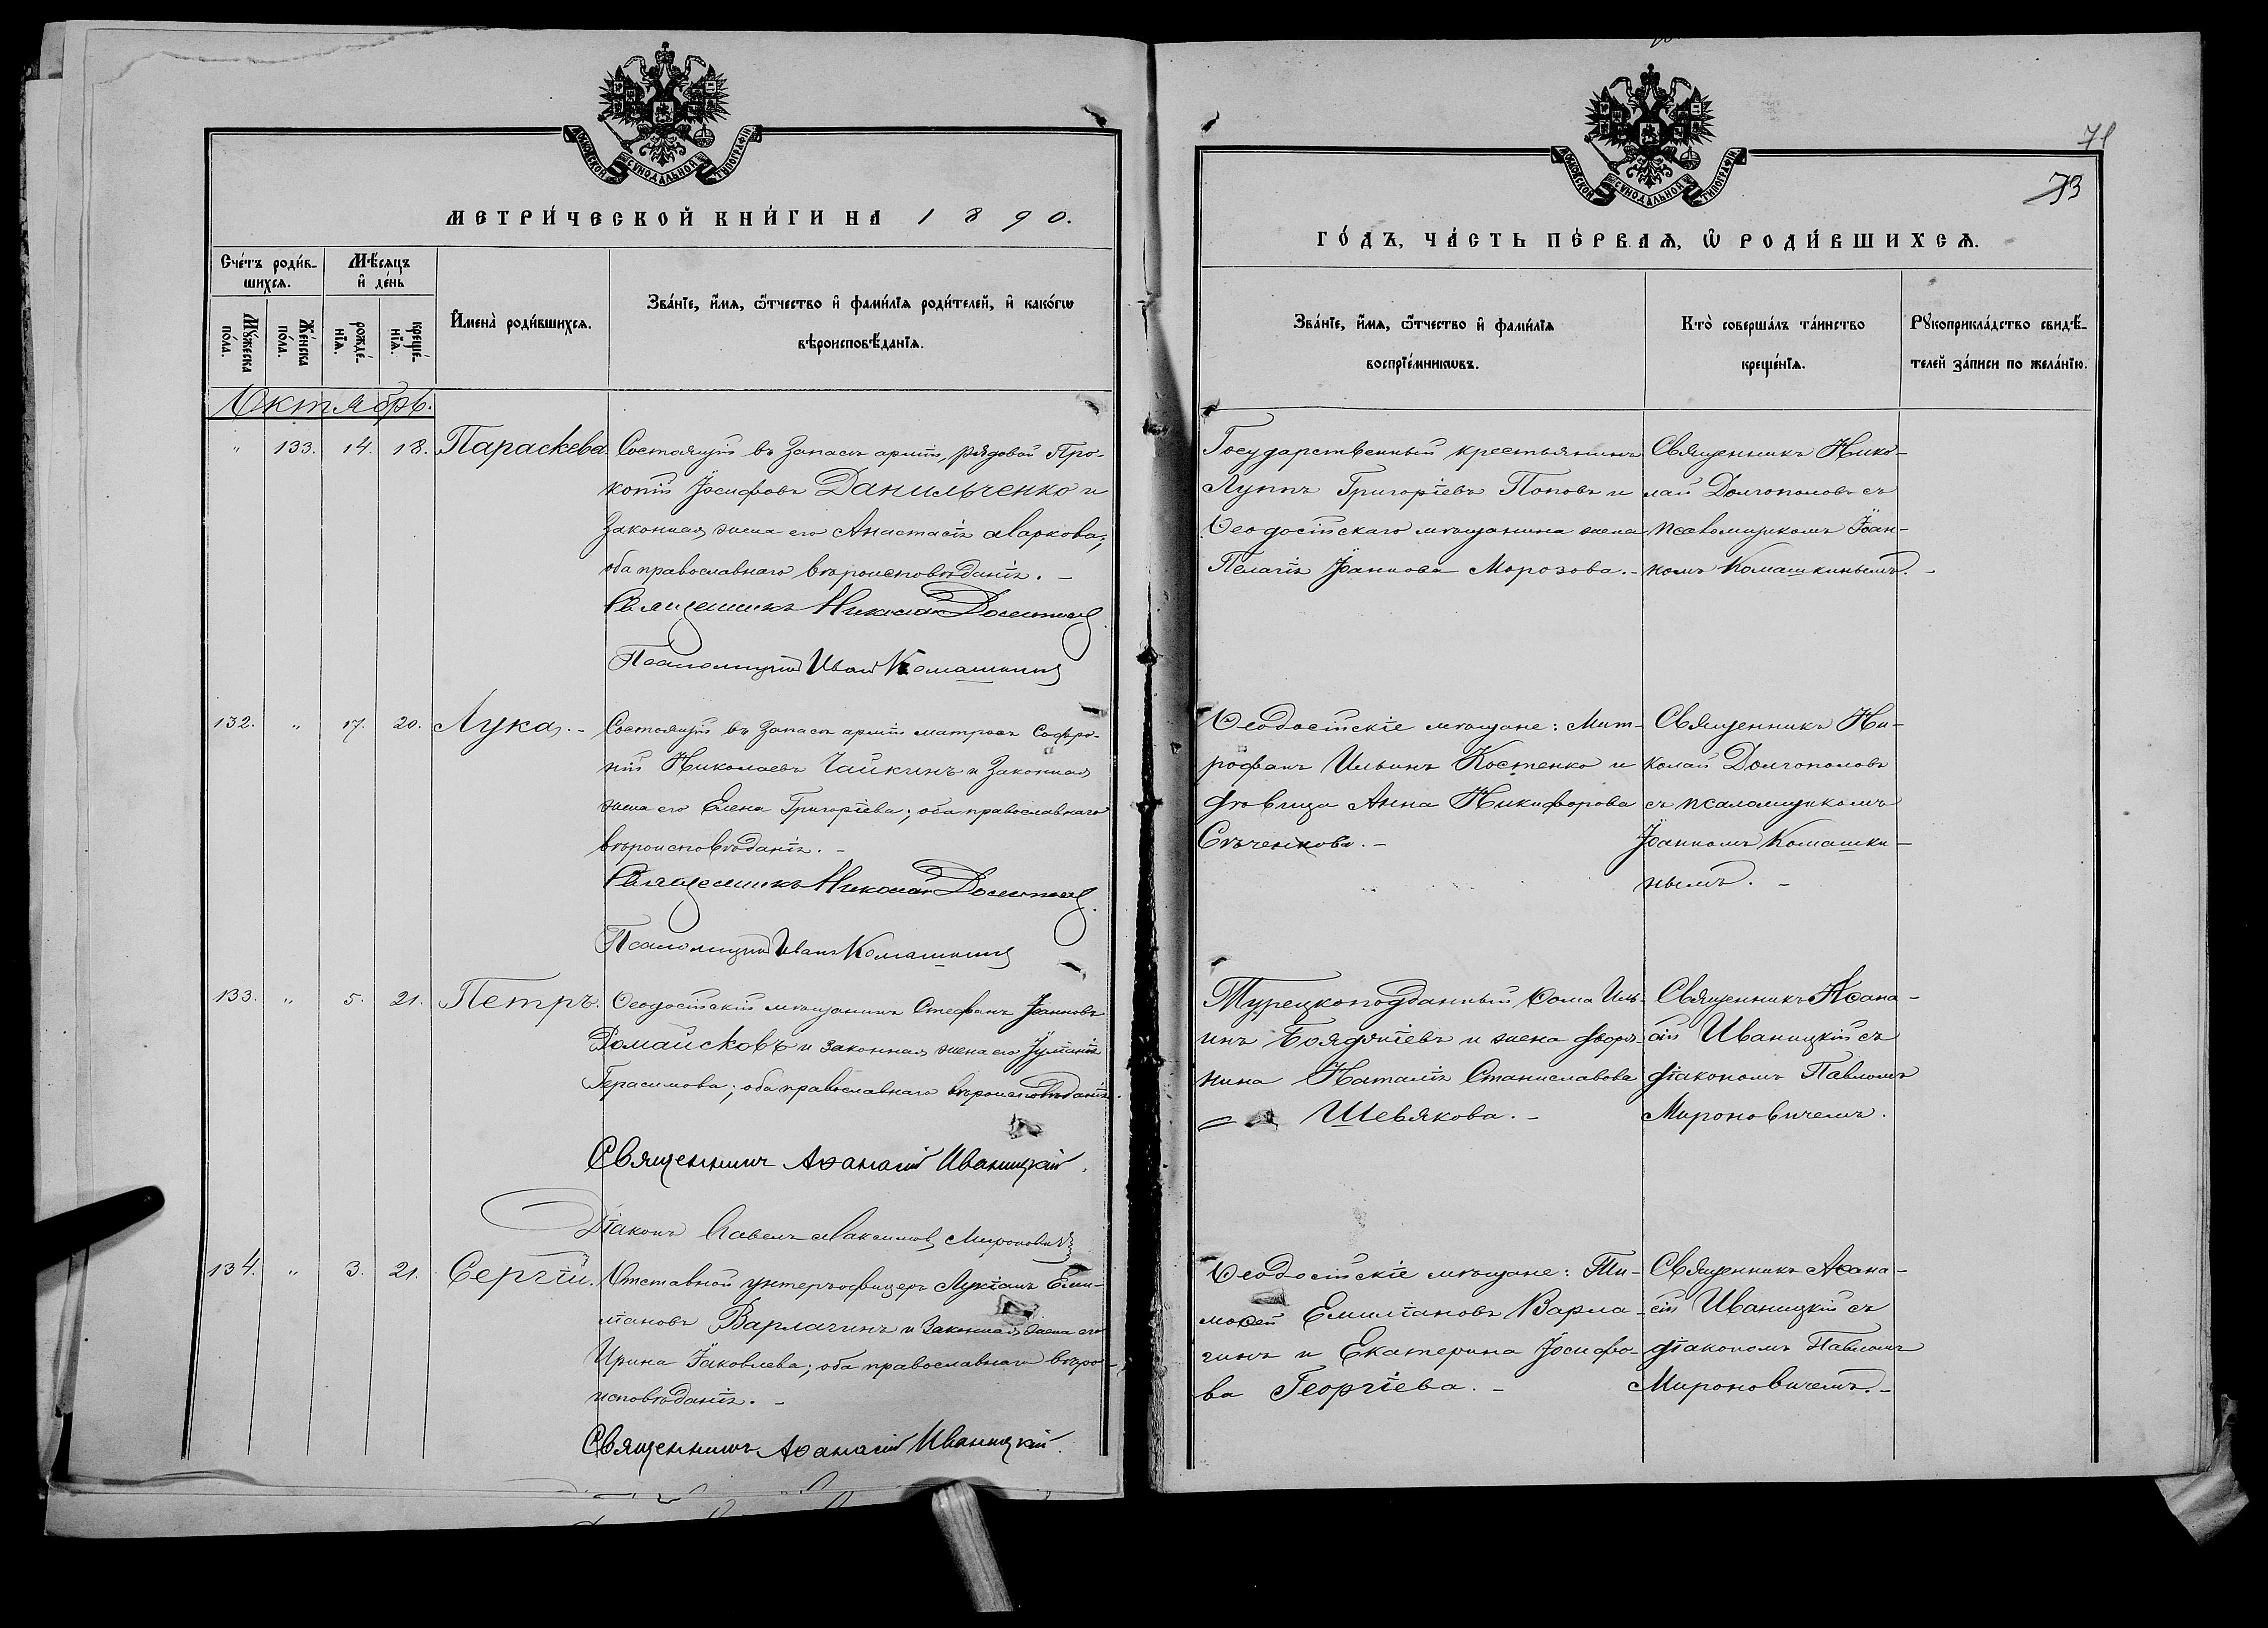 МОСКОВСКОЙ СѴНОДАЛЬНОЙ ТИПОГРАФІИ
МЕТРИ́ЧЕСКОЙ КНИ́ГИ НА 1890.
Сче́тъ роди́в-
шихсѧ.
Мѣ́сѧцъ
и҆ де́нь
Мꙋ́жеска
по́ла.
Же́нска
по́ла.
рожде́-
нїѧ.
креще́-
нїѧ.
И҆мена̀ роди́вшихсѧ.
Зва́нїе, и҆́мѧ, ѻ҆́тчество и҆ фами́лїѧ роди́телей, и҆ како́гѡ
вѣроисповѣ́данїѧ.
Октябрь.
" 133. 14. 18. Параскева.
Состоящій въ запасѣ арміи, рядовой Про-
копій Іосифовъ Данильченко и
законная жена его Анастасія Маркова;
оба православнаго вѣроисповѣданія. –
Священникъ Николай Долгополовъ
Псаломщикъ Иванъ Комашкинъ
132. " 17. 20. Лука. –
Состоящій въ запасѣ арміи матросъ Софро-
ній Николаевъ Чайкинъ и законная
жена его Елена Григоріева; оба православнаго
вѣроисповѣданія. –
Священникъ Николай Долгополовъ.
Псаломщикъ Иванъ Комашкинъ
133. " 5. 21. Петръ.
Ѳеодосійскій мѣщанинъ Стефанъ Іоанновъ
Домайсковъ и законная жена его Іуліанія
Герасимова; оба православнаго вѣроисповѣданія.
Священникъ Аѳанасій Иваницкій.
Діаконъ Павелъ Максимовъ Мироновичъ
134. " 3. 21. Сергій.
Отставной унтеръ-офицеръ Лукіанъ Еми-
ліановъ Варлагинъ и законная жена его
Ирина Іаковлева; оба православнаго вѣро-
исповѣданія. –
Священникъ Аѳанасій Иваницкій.
МОСКОВСКОЙ СѴНОДАЛЬНОЙ ТИПОГРАФІИ
71
73
ГО́ДЪ, ЧА́СТЬ ПЕ́РВАѦ, Ѡ҆ РОДИ́ВШИХСѦ.
Зва́нїе, и҆́мѧ, ѻ҆́тчество и҆ фами́лїѧ
воспрїе́мникѡвъ.
Кто̀ соверша́лъ та́инство
креще́нїѧ.
Рꙋкоприкла́дство свидѣ́-
телей за́писи по жела́нїю.
Государственный крестьянинъ
Луппъ Григоріевъ Поповъ и
Ѳеодосійскаго мѣщанина жена
Пелагія Іоаннова Морозова. –
Священникъ Нико-
лай Долгополовъ съ
псаломщикомъ Іоан-
номъ Комашкинымъ. –
Ѳеодосійскіе мѣщане: Мит-
рофанъ Ильинъ Костенко и
дѣвица Анна Никифорова
Сѣченкова. –
Священникъ Ни-
колай Долгополовъ
съ псаломщикомъ
Іоанномъ Комашки-
нымъ. –
Турецкоподданный Ѳома Иль-
инъ Бояджіевъ и жена дворя-
нина Наталія Станиславова
Шевякова. –
Священникъ Аѳана-
сій Иваницкій съ
діакономъ Павломъ
Мироновичемъ.
Ѳеодосійскіе мѣщане: Ти-
моѳей Емиліановъ Варла-
гинъ и Екатерина Іосифо-
ва Георгіева. –
Священникъ Аѳана-
сій Иваницкій съ
діакономъ Павломъ
Мироновичемъ. –